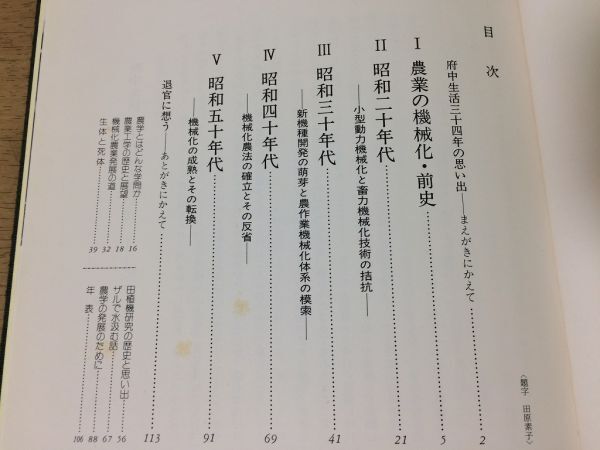 目次
府中生活三十四年の思い出——まえがきにかえて……2
Ⅰ 農業の機械化・前史……5
Ⅱ 昭和二十年代……21
——小型動力機械化と畜力機械化技術の拮抗——
Ⅲ 昭和三十年代……41
——新機種開発の萌芽と農作業機械化体系の模索——
Ⅳ 昭和四十年代……69
——機械化農法の確立とその反省——
Ⅴ 昭和五十年代……91
——機械化の成熟とその転換——
退官に想う——あとがきにかえて……113
農学とはどんな学問か……16
農業工学の歴史と展望……18
機械化農業発展の道……32
生体と死体……39
田植機研究の歴史と思い出……56
ザルで水汲む話……67
農学の発展のために……88
年表……106
〈題字 田原素子〉